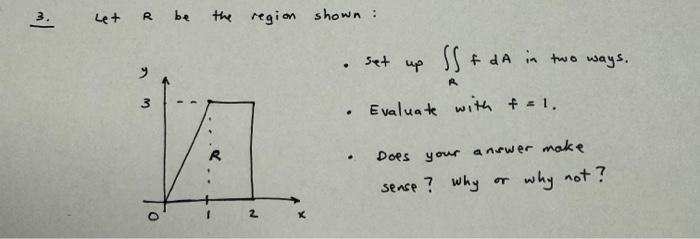 3. Let R be the region shown :
• Set up ∬ f dA in two ways.
R
• Evaluate with f = 1.
• Does your answer make
sense ? Why or why not ?
y
3
R
0 1 2 x